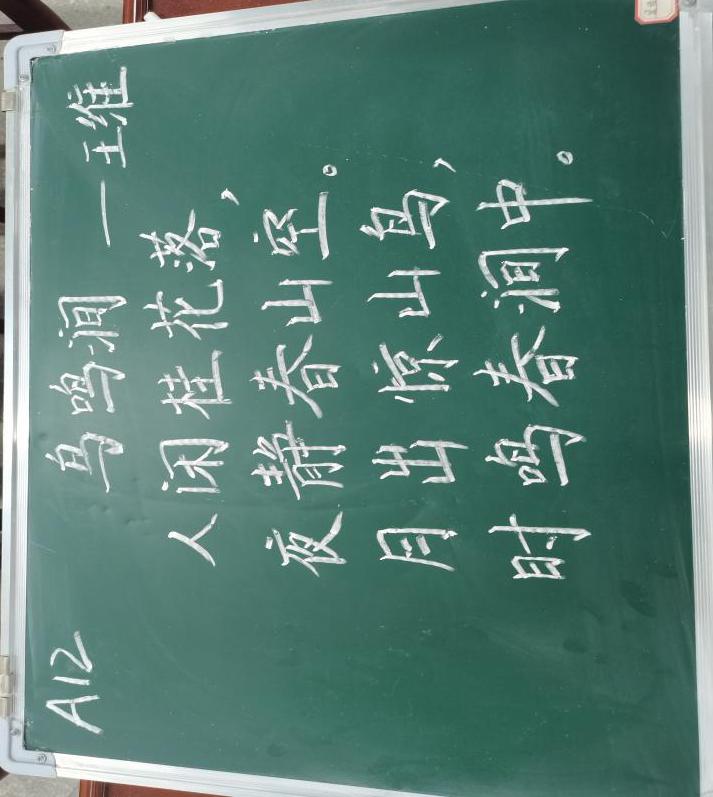 A12
鸟鸣涧 — 王维
人闲桂花落，
夜静春山空。
月出惊山鸟，
时鸣春涧中。